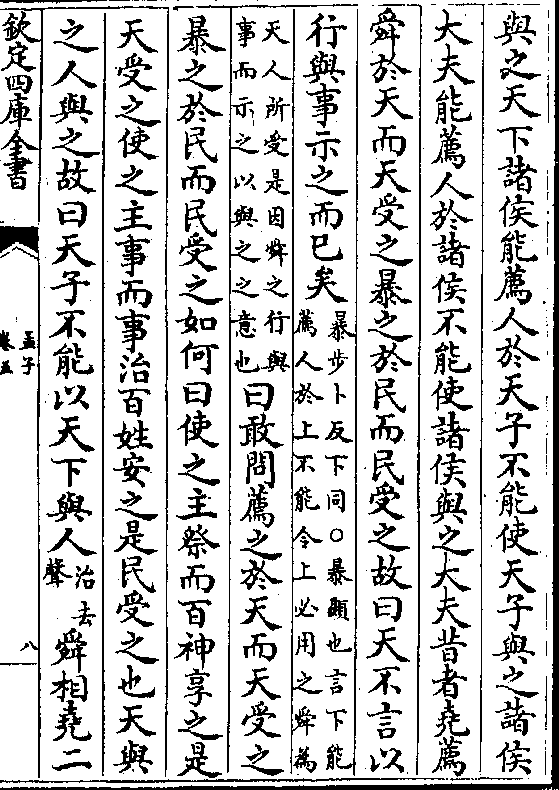 與之天下諸侯能薦人於天子不能使天子與之諸侯
大夫能薦人於諸侯不能使諸侯與之大夫昔者堯薦
舜於天而天受之暴之於民而民受之故曰天不言以
行與事示之而已矣暴步卜反下同○暴顯也言下能
薦人於上不能令上必用之舜為
天人所受是因舜之行與
事而示之以與之之意也曰敢問薦之於天而天受之
暴之於民而民受之如何曰使之主祭而百神享之是
天受之使之主事而事治百姓安之是民受之也天與
之人與之故曰天子不能以天下與人治去
聲舜相堯二
欽定四庫全書
孟子
卷五
八